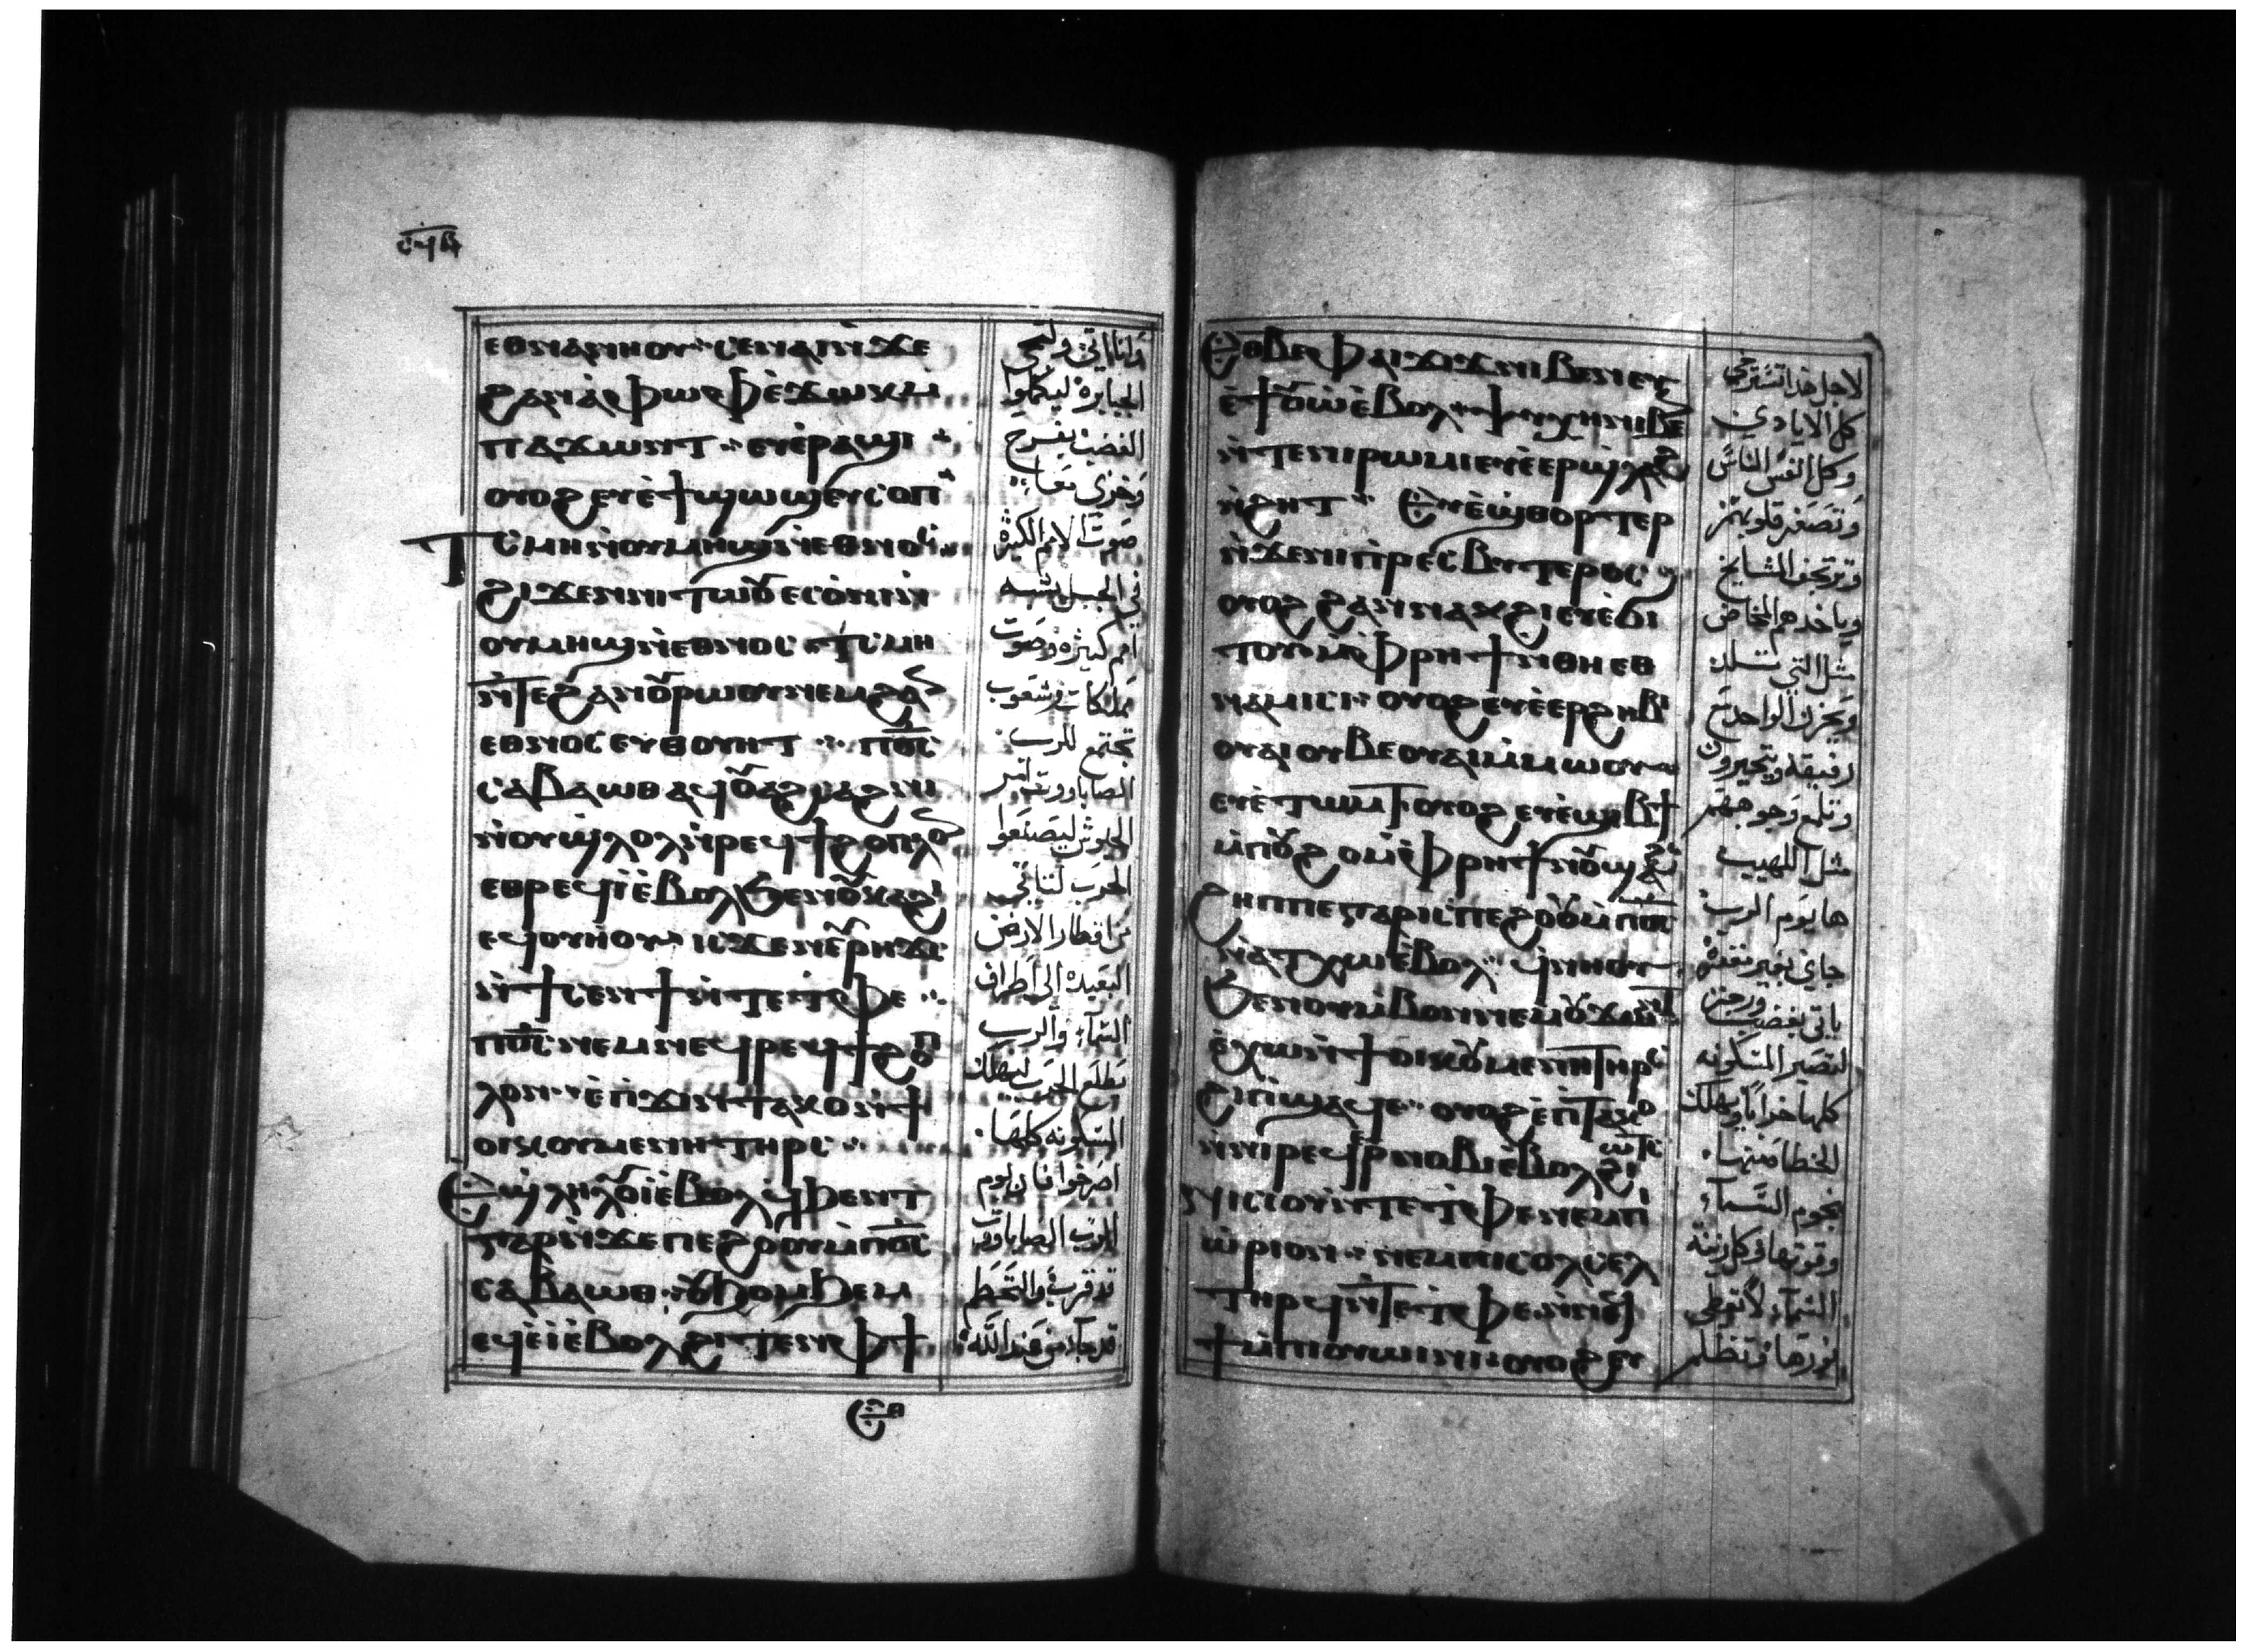 ⲥϥⲃ
ⲉⲑⲛⲁⲛⲏⲟⲩ ⲥⲉⲛⲁⲓ ⲛϫⲉ
ϩⲁⲛⲁⲫⲱⲫ ⲉϫⲱⲕ ⲙ
ⲡⲁϫⲱⲛⲧ ⲉⲩⲉⲣⲁϣⲓ
ⲟⲩⲟϩ ⲉⲩⲉϯϣⲱϣ ⲉⲩⲥⲟⲡ
ⲧⲥⲙⲏ ⲛⲟⲩⲙⲏϣ ⲛⲉⲑⲛⲟⲥ
ϩⲓϫⲉⲛ ⲛⲓⲧⲱⲟⲩ ⲉⲥⲟⲛⲓ ⲛ
ⲟⲩⲙⲏϣ ⲛⲉⲑⲛⲟⲥ ⲧⲥⲙⲏ
ⲛⲧⲉ ϩⲁⲛⲟⲩⲣⲱⲟⲩ ⲛⲉⲙ ϩⲁⲛ
ⲉⲑⲛⲟⲥ ⲉⲩⲑⲟⲩⲏⲧ ⲡ̅ⲟ̅ⲥ̅
ⲥⲁⲃⲁⲱⲑ ⲁϥⲟⲩⲁϩⲥⲁϩⲛⲓ
ⲛⲟⲩϣⲗⲟⲗ ⲛⲣⲉϥϯ ϩⲟⲡⲗⲟⲛ
ⲉⲑⲣⲉϥⲓ ⲉⲃⲟⲗ ϧⲉⲛ ⲟⲩⲕⲁϩⲓ
ⲉϥⲟⲩⲏⲟⲩ ⲓⲥϫⲉⲛ ⲁⲩⲣⲏϫⲥ
ⲛϯⲥⲉⲛϯ ⲛⲧⲉ ⲧⲫⲉ
ⲡ̅ⲟ̅ⲥ̅ ⲛⲉⲙ ⲛⲉϥⲣⲉϥϯ ϩⲟⲡ
ⲗⲟⲛ ⲉⲡϫⲓⲛⲧⲁⲕⲟ ⲛϯ
ⲟⲓⲕⲟⲩⲙⲉⲛⲏ ⲧⲏⲣⲥ
ⲉϣⲗⲏⲗⲟⲩⲓ ⲉⲃⲟⲗ ϥϧⲉⲛⲧ
ⲅⲁⲣ ⲛϫⲉ ⲡⲉϩⲟⲟⲩ ⲙⲡ̅ⲟ̅ⲥ̅
ⲥⲁⲃⲁⲱⲑ ⲟⲩϧⲟⲙϧⲉⲙ
ⲉϥⲉⲓ ⲉⲃⲟⲗ ϩⲓⲧⲉⲛ ⲫϯ
ⲉⲑ
وانا اتي ولتجي
الجبابرة ليكملوا
الغضب بفرح
وخزي معا
صوت الامم الكثيرة
في الجبل يشبه
امم كثيرة وصوت
مملكات وشعوب
تجتمع للرب
الصاباووت امر
الجيوش ليصنعوا
الحرب لتاتي
من اقطار الارض
البعيدة الى اطراف
السماء والرب
تطلع الحرب ليهلك
المسكونة كلها
اصرخوا فان يوم
الرب الصاباوت
قد قرب والتحطم
قد جاء من عند الله
ⲉⲑⲃⲉ ⲫⲁⲓ ϫⲓϫ ⲛⲓⲃⲉⲛ ⲉⲩ
ⲉϯⲟⲩⲱ ⲉⲃⲟⲗ ⲯⲩⲭⲏ ⲛⲓⲃⲉⲛ
ⲛⲧⲉ ⲛⲓⲣⲱⲙⲓ ⲉⲩⲉⲉⲣϣⲗⲁϩ
ⲛϩⲏⲧ ⲉⲩⲉϣⲑⲟⲣⲧⲉⲣ
ⲛϫⲉ ⲛⲓⲡⲣⲉⲥⲃⲩⲧⲉⲣⲟⲥ
ⲟⲩⲟϩ ϩⲁⲛⲛⲁⲕϩⲓ ⲉⲩⲉϭⲓ
ⲧⲟⲩ ⲙⲫⲣⲏϯ ⲛⲑⲏ ⲉⲑ
ⲛⲁⲙⲓⲥⲓ ⲟⲩⲟϩ ⲉⲩⲉⲉⲣϩⲏⲃⲓ
ⲟⲩⲁⲓ ⲟⲩⲃⲉ ⲟⲩⲁⲓ ⲙⲙⲱⲟⲩ
ⲉⲩⲉⲧⲱⲙⲧ ⲟⲩⲟϩ ⲉⲩⲉϣⲓⲃϯ
ⲙⲡⲟⲩϩⲟ ⲙⲫⲣⲏϯ ⲛⲟⲩϣⲁϩ
ϩⲏⲡⲡⲉ ⲅⲁⲣ ⲓⲥ ⲡⲉϩⲟⲟⲩ ⲙⲡ̅ⲟ̅ⲥ̅
ⲛⲁⲧⲭⲱ ⲉⲃⲟⲗ ϥⲛⲏⲟⲩ
ϧⲉⲛ ⲟⲩⲙⲃⲟⲛ ⲛⲉⲙ ⲟⲩϫⲱⲛⲧ
ⲉⲭⲱ ⲛϯⲟⲓⲕⲟⲩⲙⲉⲛⲏ ⲧⲏⲣⲥ
ϩⲓ ⲡϣⲁϥⲉ ⲟⲩⲟϩ ⲉⲡⲧⲁⲕⲟ
ⲛⲛⲓⲣⲉϥⲉⲣⲛⲟⲃⲓ ⲉⲃⲟⲗ ϩⲓⲱⲧⲥ
ⲛⲓⲥⲓⲟⲩ ⲛⲧⲉ ⲧⲫⲉ ⲛⲉⲙ ⲡⲓ
ⲱⲣⲓⲟⲛ ⲛⲉⲙ ⲡⲓⲥⲟⲗⲥⲉⲗ
ⲧⲏⲣϥ ⲛⲧⲉ ⲧⲫⲉ ⲛⲛⲟⲩ
ϯ ⲙⲡⲟⲩⲱⲓⲛⲓ ⲟⲩⲟϩ ⲉⲩ
لاجل هذا تسترخي
كل الايادي
وكل انفس الناس
وتصغر قلوبهم
وترتجف المشايخ
وياخذهم المخاض
مثل التي تلد
ويحزن الواحد مع
رفيقه ويتحيرون
وتتغير وجوههم
مثل اللهيب
ها يوم الرب
جاي بغير مغفرة
ياتي بغضب ورجز
لتصير المسكونة
كلها خرابا ويهلك
الخطاة منها
نجوم السماء
وقوتها وكل زينة
السماء لا تعطي
نورها وتظلم